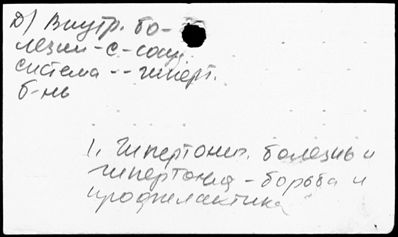 Д) Внутр. бо-
лезни-с-сосуд.
система -- гиперт.
б-нь
1. Гипертонич. болезнь и
гипертония - борьба и
профилактика"